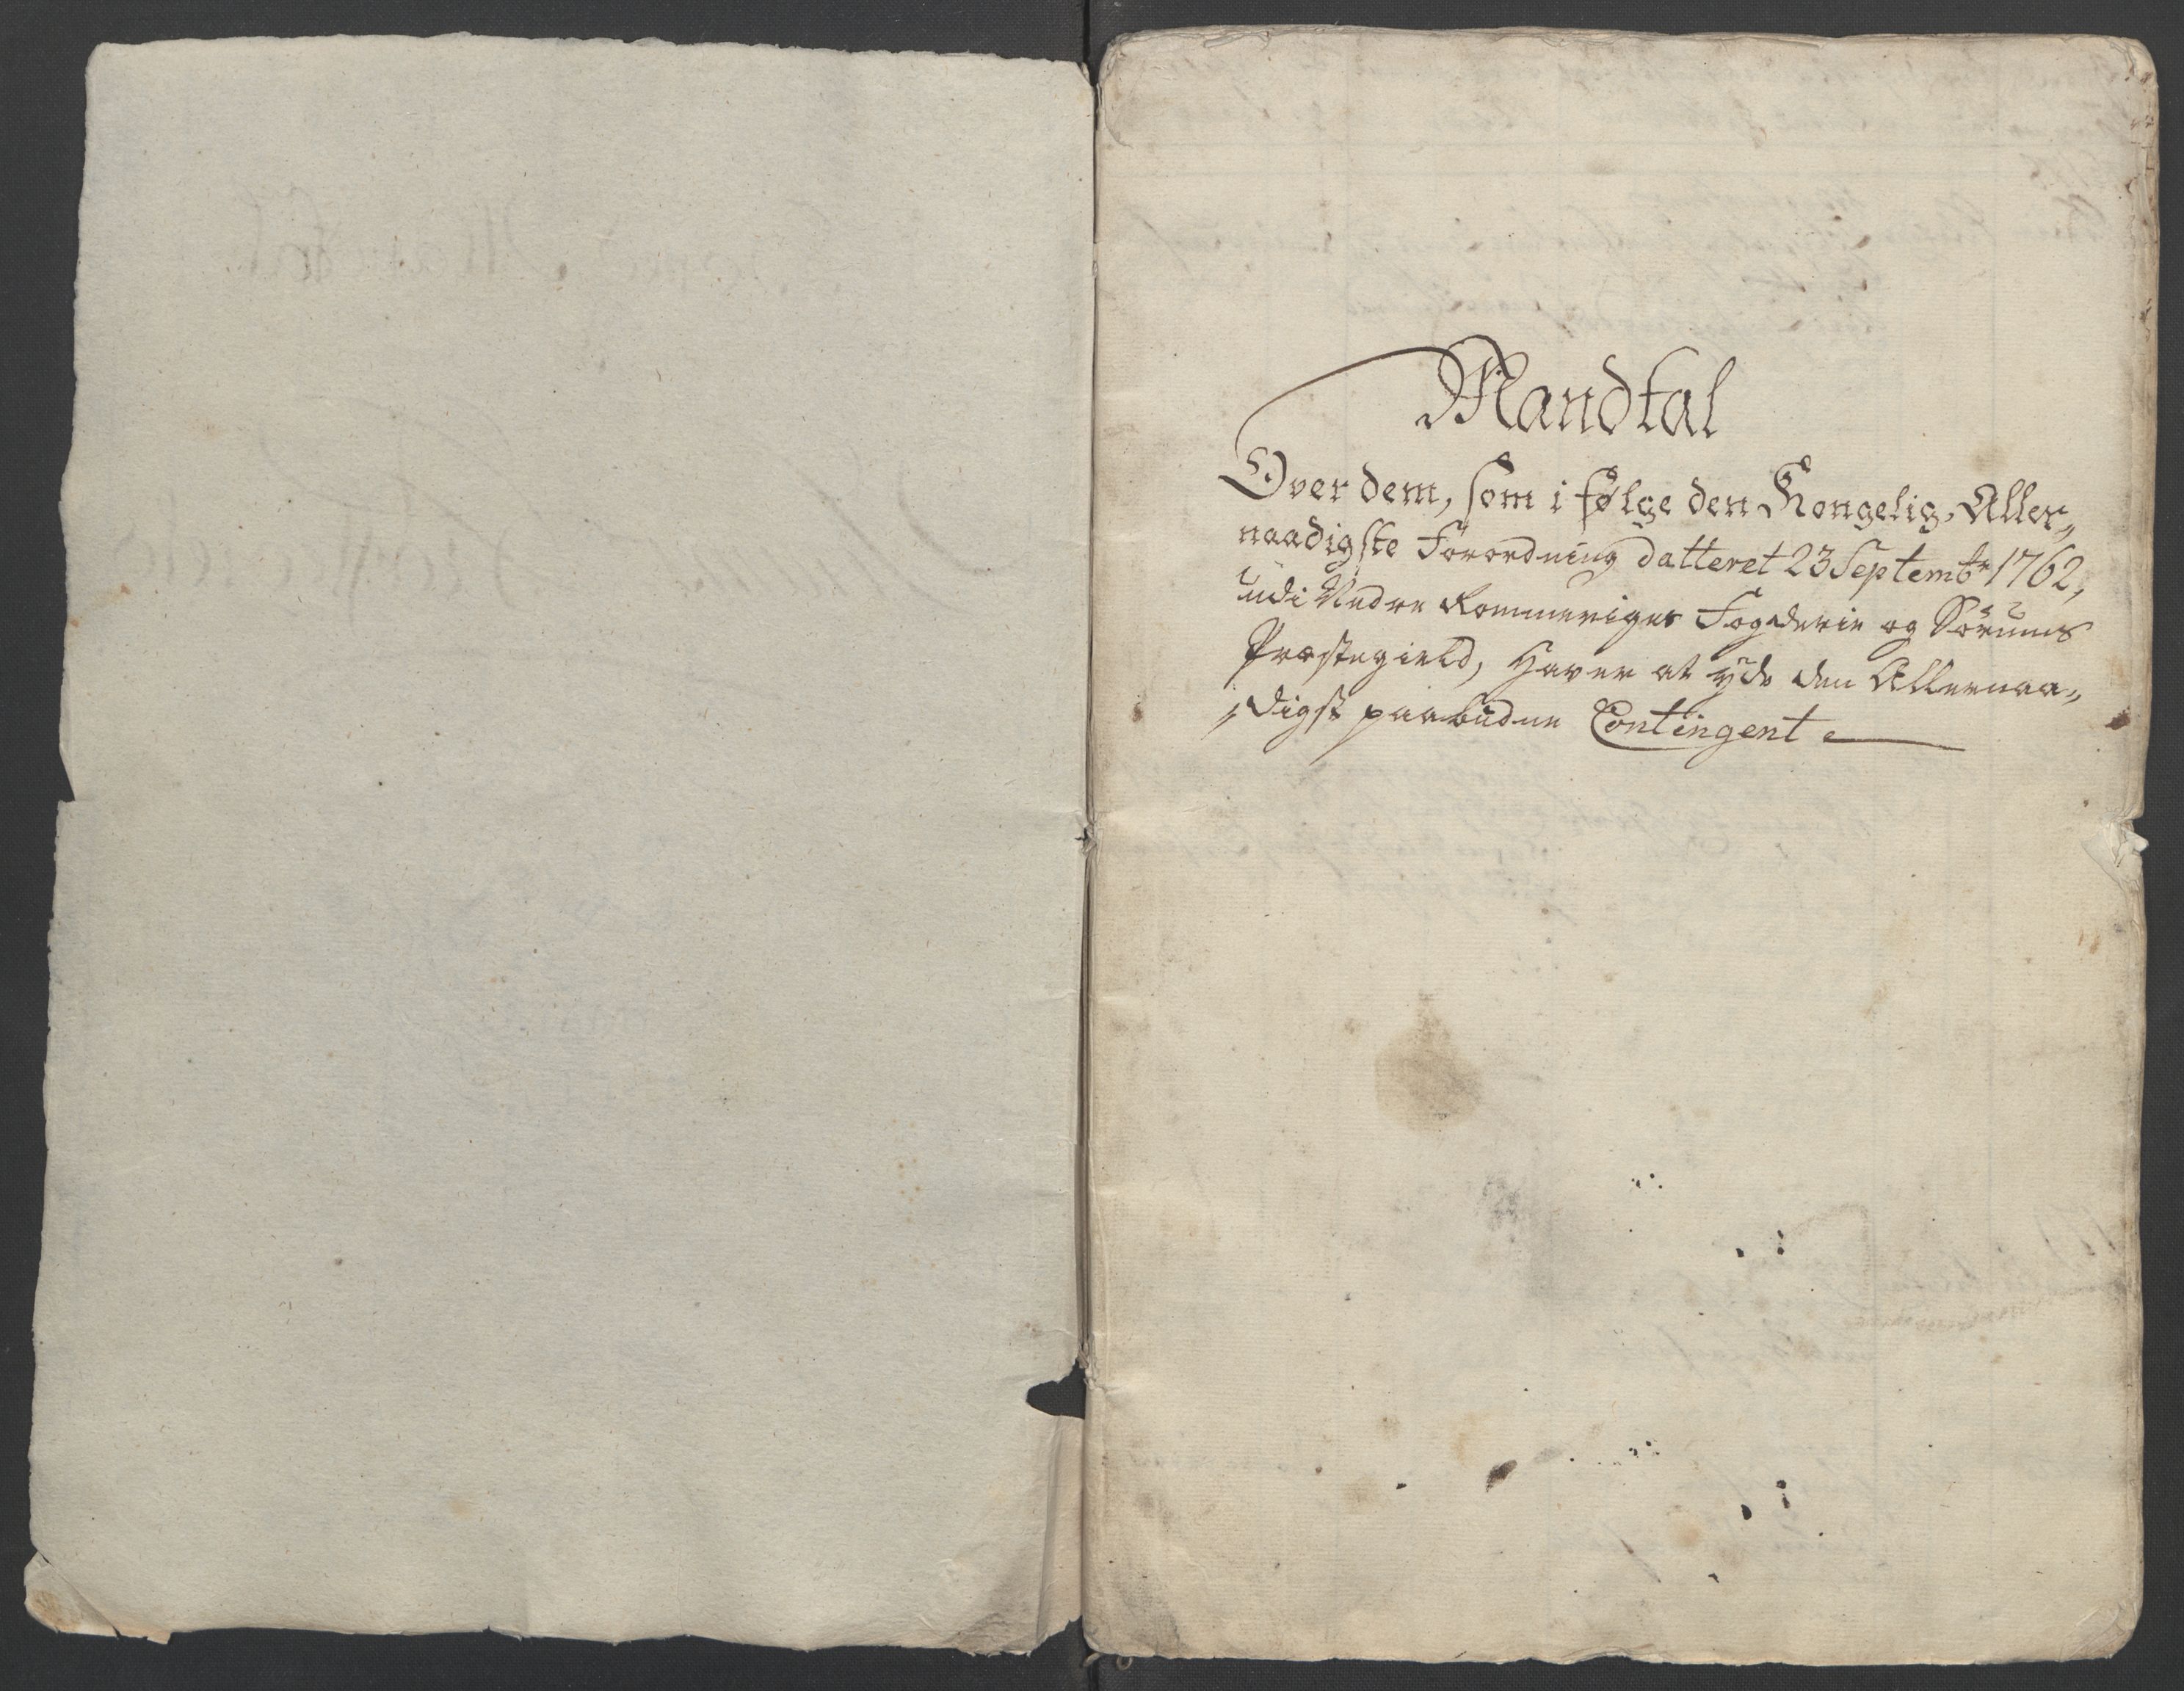 Mandtal
Over dem, som i følge den Kongelig, Aller„
naadigste Forordning datteret 23 Septembr 1762,
udi Nedre Rommeriges Fogderie og Sörums
Præstegield, haver at yde den Allernaa„
„digst paabudne Contingent